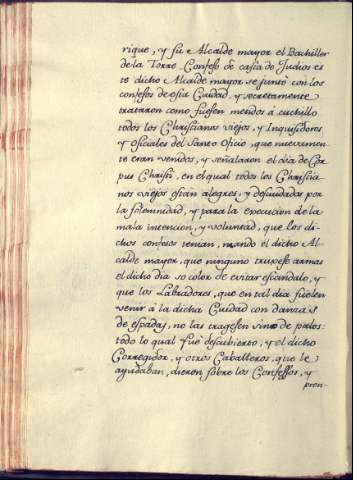 rique, y sù Alcalde mayor el Bachiller
de la Torre Confeso de casta de Judios es
te dicho Alcalde mayor se juntò con los
confesos de esta Ciudad, y secretamente
trataron como fuesen metidos à cuchillo
todos los Christianos viejos, y Inquisidores,
y Oficiales del Santo Oficio, que nuevamen
te eran venidos, y señalaron el dia de Cor
pus Christi, en el qual todos los Christia-
nos viejos estàn alegres, y descuidados por
la solemnidad, y para la execucion de la
mala intencion, y voluntad, que los di-
chos confesos tenian, mandò el dicho Al-
calde mayor, que ninguno truxese armas
el dicho dia so color de evitar escandalo, y
que los Labradores, que en tal dia suelen
venir à la dicha Ciudad con danzas
de espadas, no las tragesen sino de palos:
todo lo qual fuè descubierto, y el dicho
Corregidor, y otros Caballeros, que le
ayudaban, dieron sobre los Confessos, y
pren-